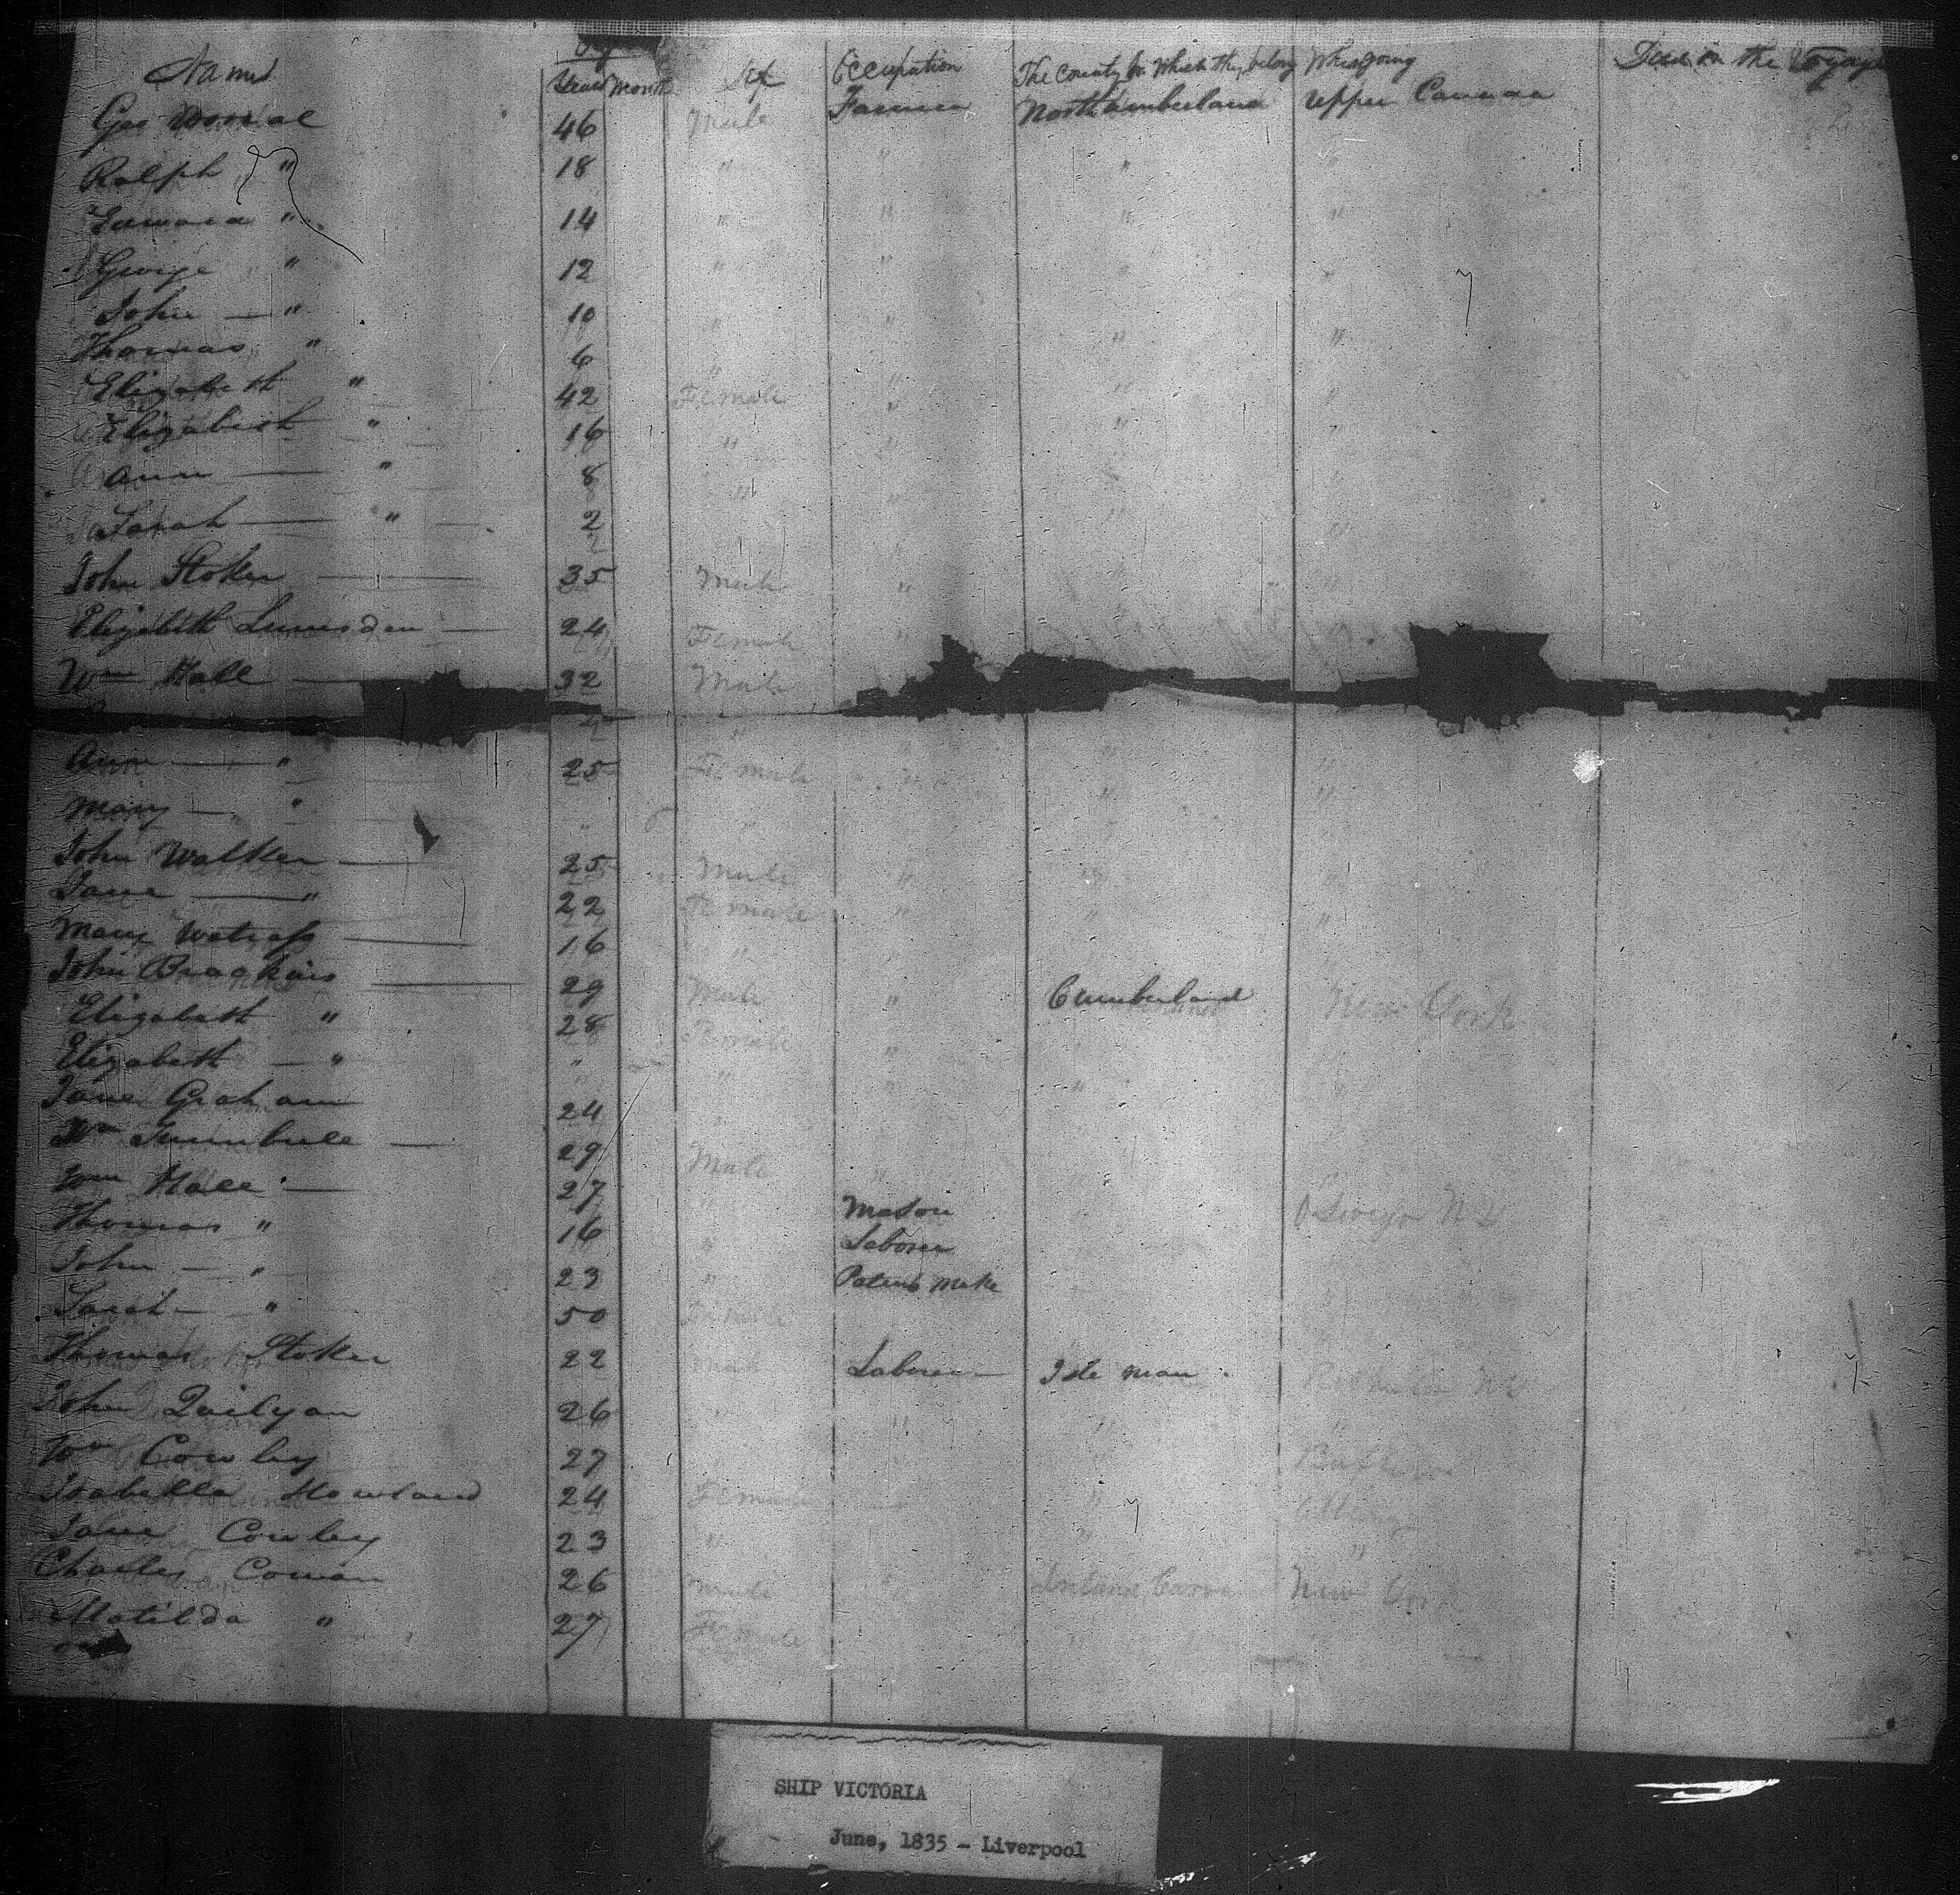 Names Age Years Months Sex Occupation The County to Which they belong Where going Died on the Voyage
Geo 46 Male Farmer Northumberland Upper Canada
Ralph " 18 " " "
Edward " 14 " " " "
George " 12 " " " "
John — " 10 " " "
Thomas " 6 " " "
Elizabeth " 42 Female " " "
Elizabeth " 16 " " " "
Ann — " 8 " " "
Sarah — " 2 " "
John Stoker — 35 Male " " "
Elizabeth Lumsden — 24 Female " " "
Wm Hall — 32 Male
2 "
Ann — " 25 Female " " "
Mary — " " " "
John Walker — 25 Male " " "
Jane — " 22 Female " " "
Mary — 16 "
John — 29 Male " Cumberland New York
Elizabeth " 28 Female
Elizabeth — " " " " "
Jane Graham 24
Wm Turnbull — 29 Male "
Wm Hall — 27 Mason Oswego N Y
Thomas " 16 " Laborer
John — " 23 " Patent Make
Sarah — " 50 Female
Thomas Stoker 22 Male Laborer — Isle man
John 26 " "
Wm Cowley 27 Buffalo
Isabella 24 Female " Albany
Jane Cowley 23 " " "
Charles Cowan 26 Male " New York
Matilda " 27 Female "
SHIP VICTORIA
June, 1835 - Liverpool